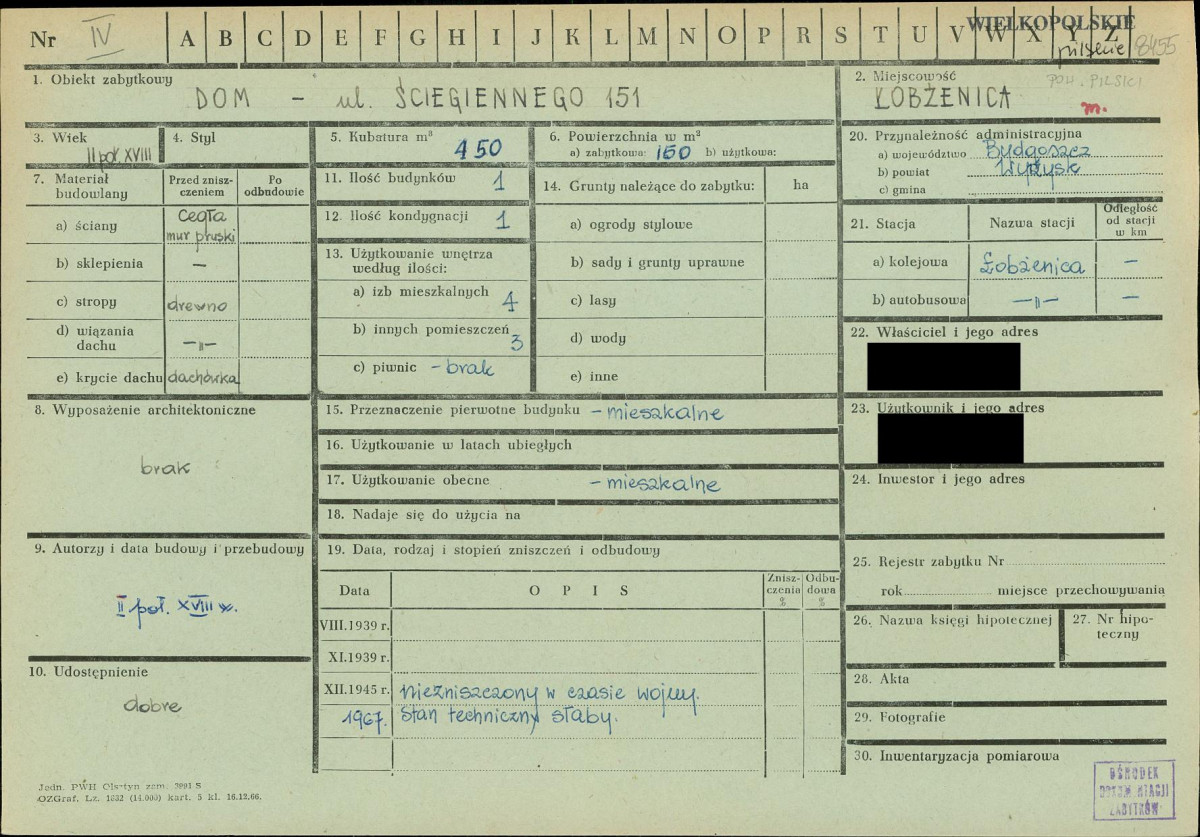 WIELKOPOLSKIE
Nr IV A B C D E F G H I J K L M N O P R S T U V W X Y Z
pilskie 8455
1. Obiekt zabytkowy
DOM - ul. ŚCIEGIENNEGO 151
2. Miejscowość
POW. PILSKI
ŁOBŻENICA m.
3. Wiek
II poł. XVIII
4. Styl
5. Kubatura m³ 450
6. Powierzchnia w m²
a) zabytkowa: 150 b) użytkowa:
7. Materiał budowlany
Przed zniszczeniem
Po odbudowie
a) ściany Cegła mur pruski
b) sklepienia —
c) stropy drewno
d) wiązania dachu —„—
e) krycie dachu dachówka
8. Wyposażenie architektoniczne
brak
9. Autorzy i data budowy i przebudowy
II poł. XVIII w.
10. Udostępnienie
dobre
11. Ilość budynków 1
12. Ilość kondygnacji 1
13. Użytkowanie wnętrza według ilości:
a) izb mieszkalnych 4
b) innych pomieszczeń 3
c) piwnic - brak
14. Grunty należące do zabytku: ha
a) ogrody stylowe
b) sady i grunty uprawne
c) lasy
d) wody
e) inne
15. Przeznaczenie pierwotne budynku - mieszkalne
16. Użytkowanie w latach ubiegłych
17. Użytkowanie obecne - mieszkalne
18. Nadaje się do użycia na
19. Data, rodzaj i stopień zniszczeń i odbudowy
Data OPIS Zniszczenia % Odbudowa %
VIII.1939 r.
XI.1939 r.
XII.1945 r. niezniszczony w czasie wojny.
1967. Stan techniczny słaby.
20. Przynależność administracyjna
a) województwo Bydgoszcz
b) powiat Wyrzysk
c) gmina
21. Stacja Nazwa stacji Odległość od stacji w km
a) kolejowa Łobżenica —
b) autobusowa —„— —
22. Właściciel i jego adres
23. Użytkownik i jego adres
24. Inwestor i jego adres
25. Rejestr zabytku Nr
rok miejsce przechowywania
26. Nazwa księgi hipotecznej
27. Nr hipoteczny
28. Akta
29. Fotografie
30. Inwentaryzacja pomiarowa
Jedn. PWH Olsztyn zam. 3991 S
OZGraf. Lz. 1332 (14.000) kart. 5 kl. 16.12.66.
OŚRODEK
DOKUMENTACJI
ZABYTKÓW